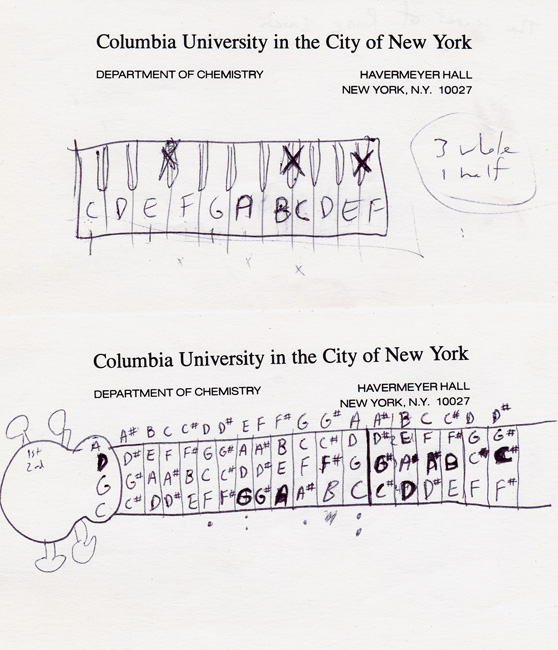 Columbia University in the City of New York
DEPARTMENT OF CHEMISTRY HAVERMEYER HALL
NEW YORK, N.Y. 10027
3 whole
1 half
C D E F G A B C D E F
Columbia University in the City of New York
DEPARTMENT OF CHEMISTRY HAVERMEYER HALL
NEW YORK, N.Y. 10027
1st
2nd
A A# B C C# D D# E F F# G G# A A# B C C# D D#
D D# E F F# G G# A A# B C C# D D# E F F# G G#
G G# A A# B C C# D D# E F F# G G# A# A# B C# C#
C C# D D# E F F# G G# A A# B C C# D D# E F F#